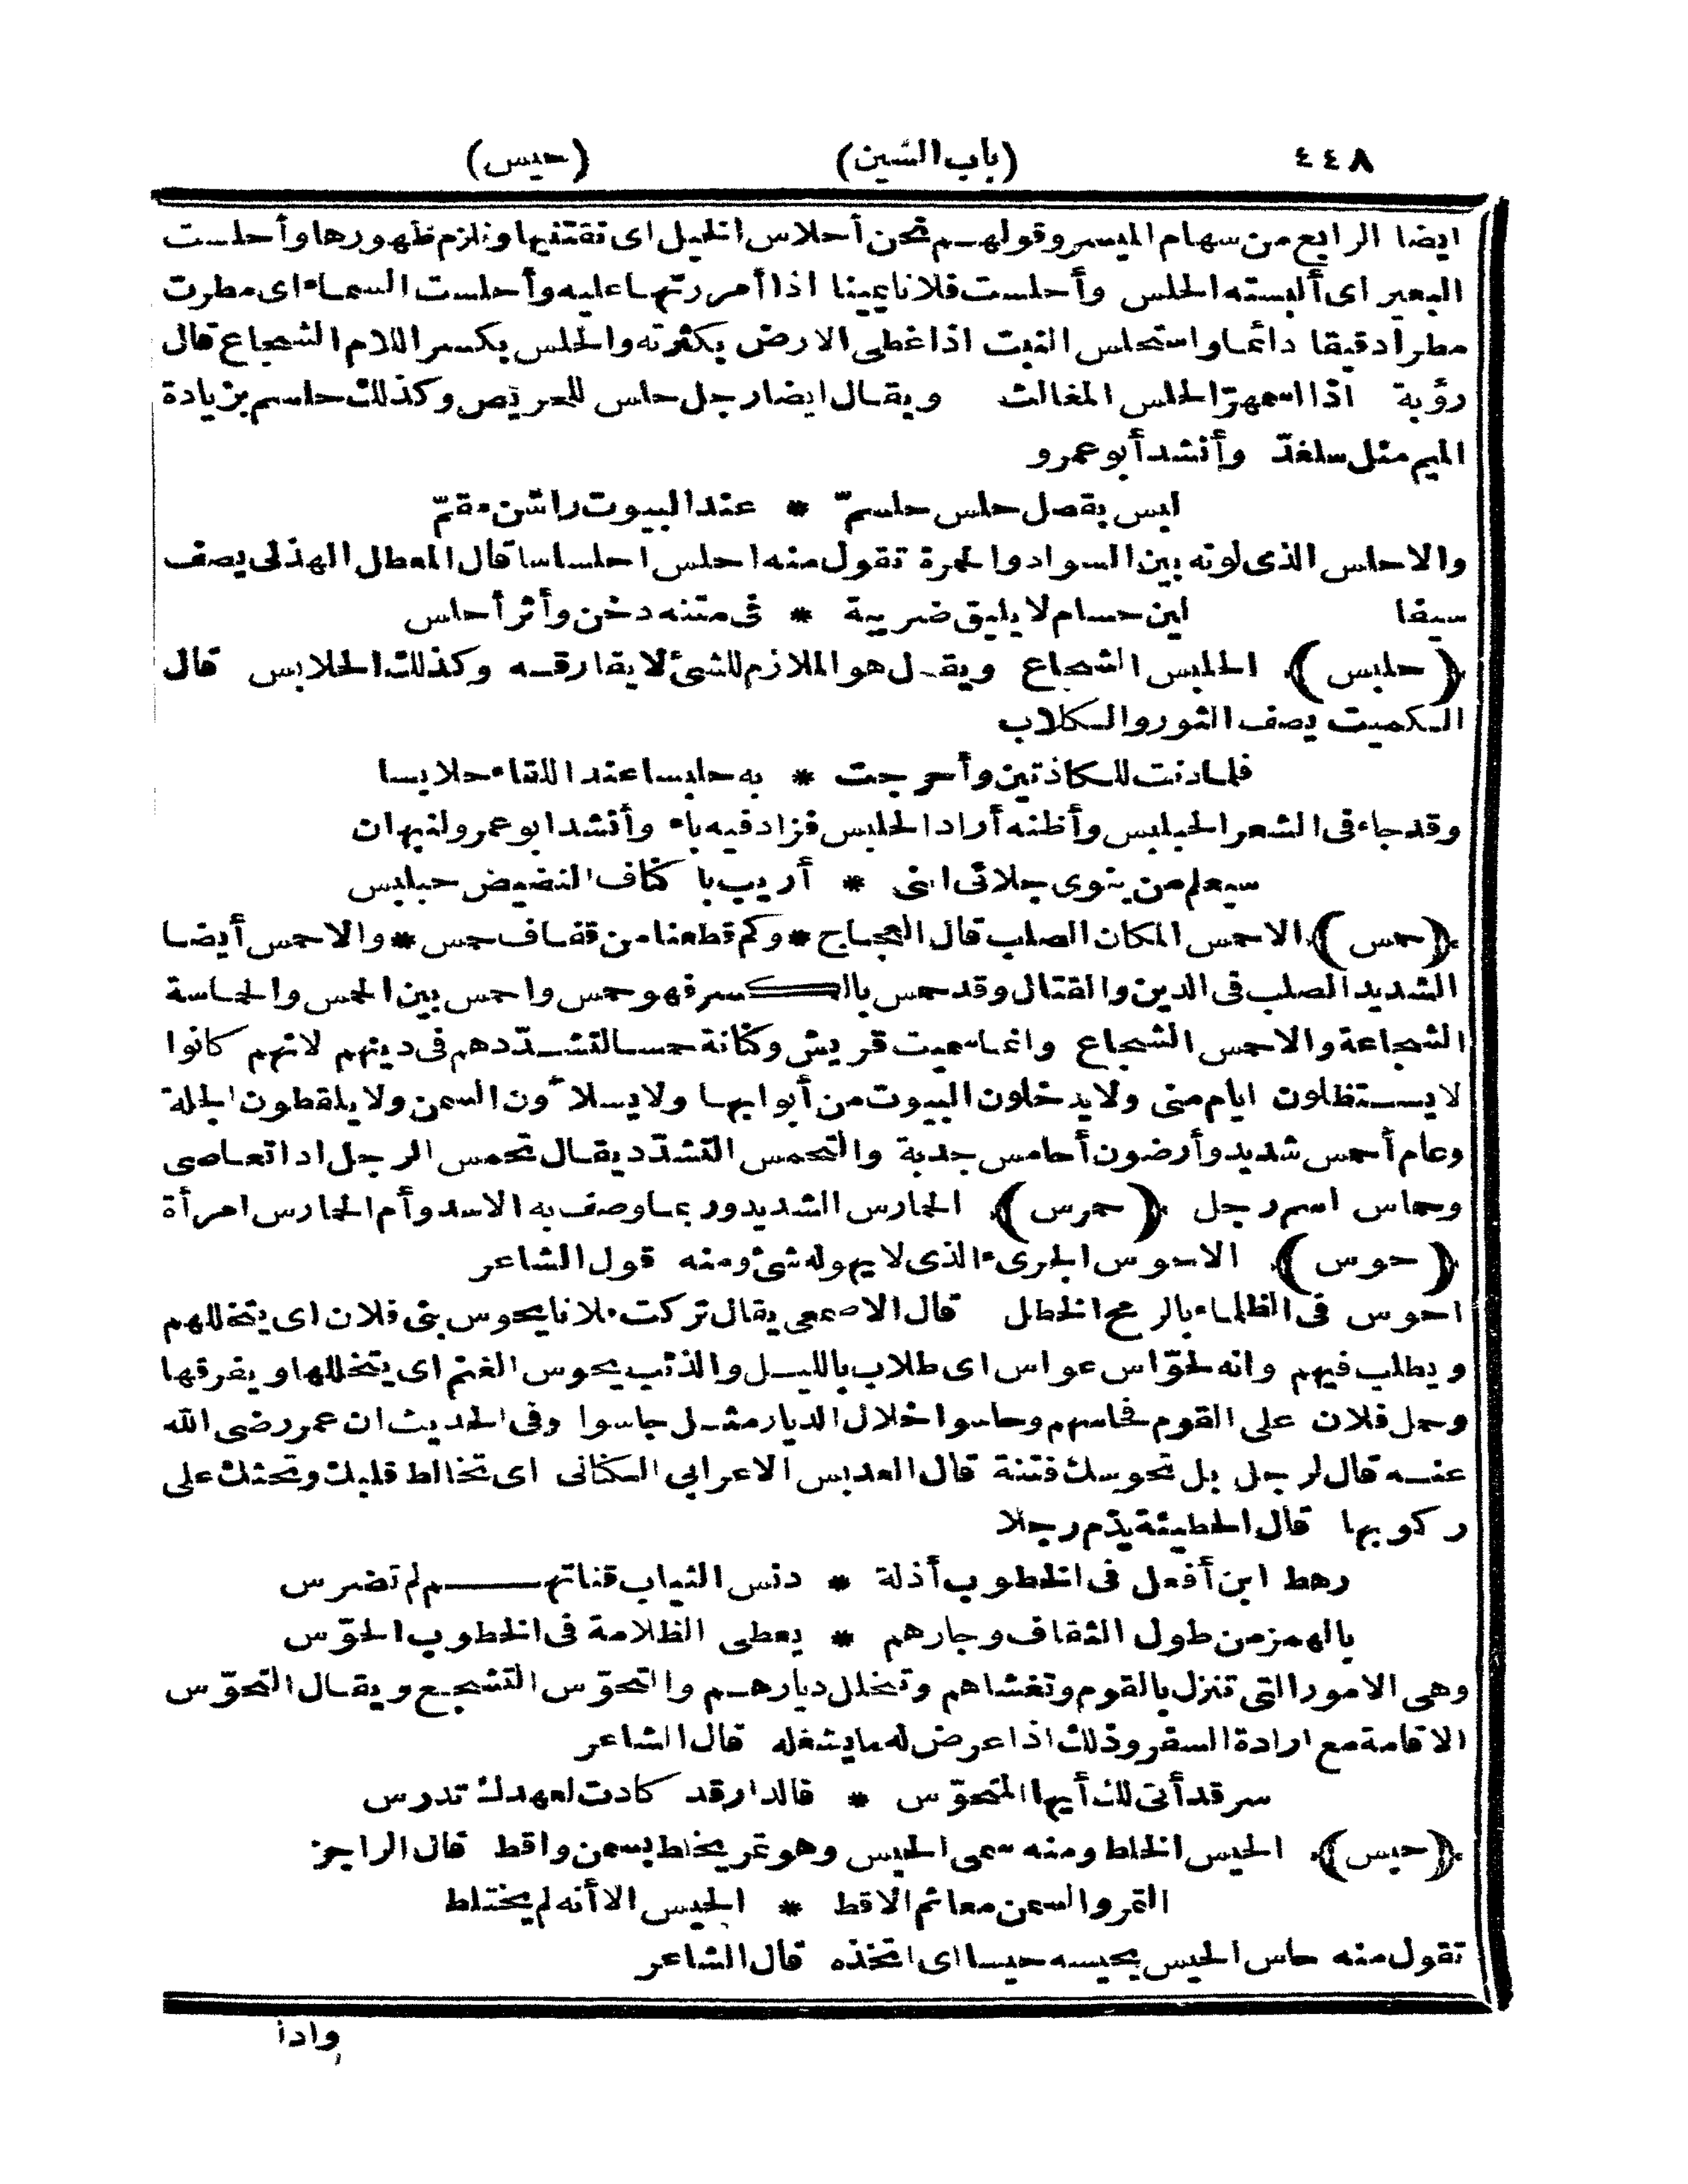 ٤٤٨ (باب السّين) (حيس)
ايضا الرابع من سهام الميسر وقولهم نحن أحلاس الخيل اى نقتنيها ونلزم ظهورها وأحلست
البعير اى ألبسته الحلس وأحلست فلانا يمينا اذا أمررتها عليه وأحلست السماء اى مطرت
مطرا دقيقا دائما واستحلس النبت اذا غطى الارض بكثرته والحلس بكسر اللام الشجاع قال
رؤبة اذا اسمهرّ الحلس المغالث ويقال ايضا رجل حلس للحريص وكذلك حلسم بزيادة
الميم مثل سلغدّ وأنشد أبو عمرو
ليس بقصل حلس حلسمّ * عند البيوت راشن مقمّ
والاحلس الذى لونه بين السواد والحمرة تقول منه احلس احلساسا قال المعطل الهذلى يصف
سيفا لين حسام لا يليق ضريبة * فى متنه دخن وأثر أحلس
(حلبس) الحلبس الشجاع ويقال هو الملازم للشئ لا يفارقه وكذلك الحلابس قال
الكميت يصف الثور والكلاب
فلما دنت للكاذتين وأحرجت * به حلبسا عند اللقاء حلابسا
وقد جاء فى الشعر الحبلبس وأظنه أراد الحلبس فزاد فيه باء وأنشد ابو عمرو لنبهان
سيعلم من ينوى جلائى اننى * أريب با كناف النضيض حبلبس
(حمس) الاحمس المكان الصلب قال العجاج * وكم قطعنا من قفاف حمس * والاحمس أيضا
الشديد الصلب فى الدين والقتال وقد حمس بالكسر فهو حمس واحمس بين الحمس والحماسة
الشجاعة والاحمس الشجاع وانما سميت قريش وكنانة حمسا لتشدّدهم فى دينهم لانهم كانوا
لا يستظلون ايام منى ولا يدخلون البيوت من أبوابها ولا يسلاٴون السمن ولا يلقطون الجلة
وعام أحمس شديد وأرضون أحامس جدبة والتحمس التشدّد يقال تحمس الرجل اذا تعاصى
وحماس اسم رجل (حمرس) الحمارس الشديد وربما وصف به الاسد وأم الحمارس امرأة
(حوس) الاحوس الجرىء الذى لا يهوله شئ ومنه قول الشاعر
احوس فى الظلماء بالرمح الخطل قال الاصمعى يقال تركت فلانا يحوس بنى فلان اى يتخللهم
ويطلب فيهم وانه لحوّاس عواس اى طلاب بالليل والذئب يحوس الغنم اى يتخللها ويفرقها
وحمل فلان على القوم فحاسهم وحاسوا خلال الديار مثل جاسوا وفى الحديث ان عمر رضى الله
عنه قال لرجل بل تحوسك فتنة قال العدبس الاعرابى الكنانى اى تخالط قلبك وتحثك على
ركوبها قال الحطيئة يذم رجلا
رهط ابن أفعل فى الخطوب أذلة * دنس الثياب قناتهم لم تضرس
بالهمز من طول الثقاف وجارهم * يعطى الظلامة فى الخطوب الحوّس
وهى الامور التى تنزل بالقوم وتغشاهم وتخلل ديارهم والتحوّس التشجع ويقال التحوّس
الاقامة مع ارادة السفر وذلك اذا عرض له ما يشغله قال الشاعر
سر قد أنى لك أيها المتحوّس * فالدار قد كادت لعهدك تدرس
(حيس) الحيس الخلط ومنه سمى الحيس وهو تمر يخلط بسمن واقط قال الراجز
التمر والسمن معا ثم الاقط * الحيس الا أنه لم يختلط
تقول منه حاس الحيس يحيسه حيسا اى اتخذه قال الشاعر
واذا